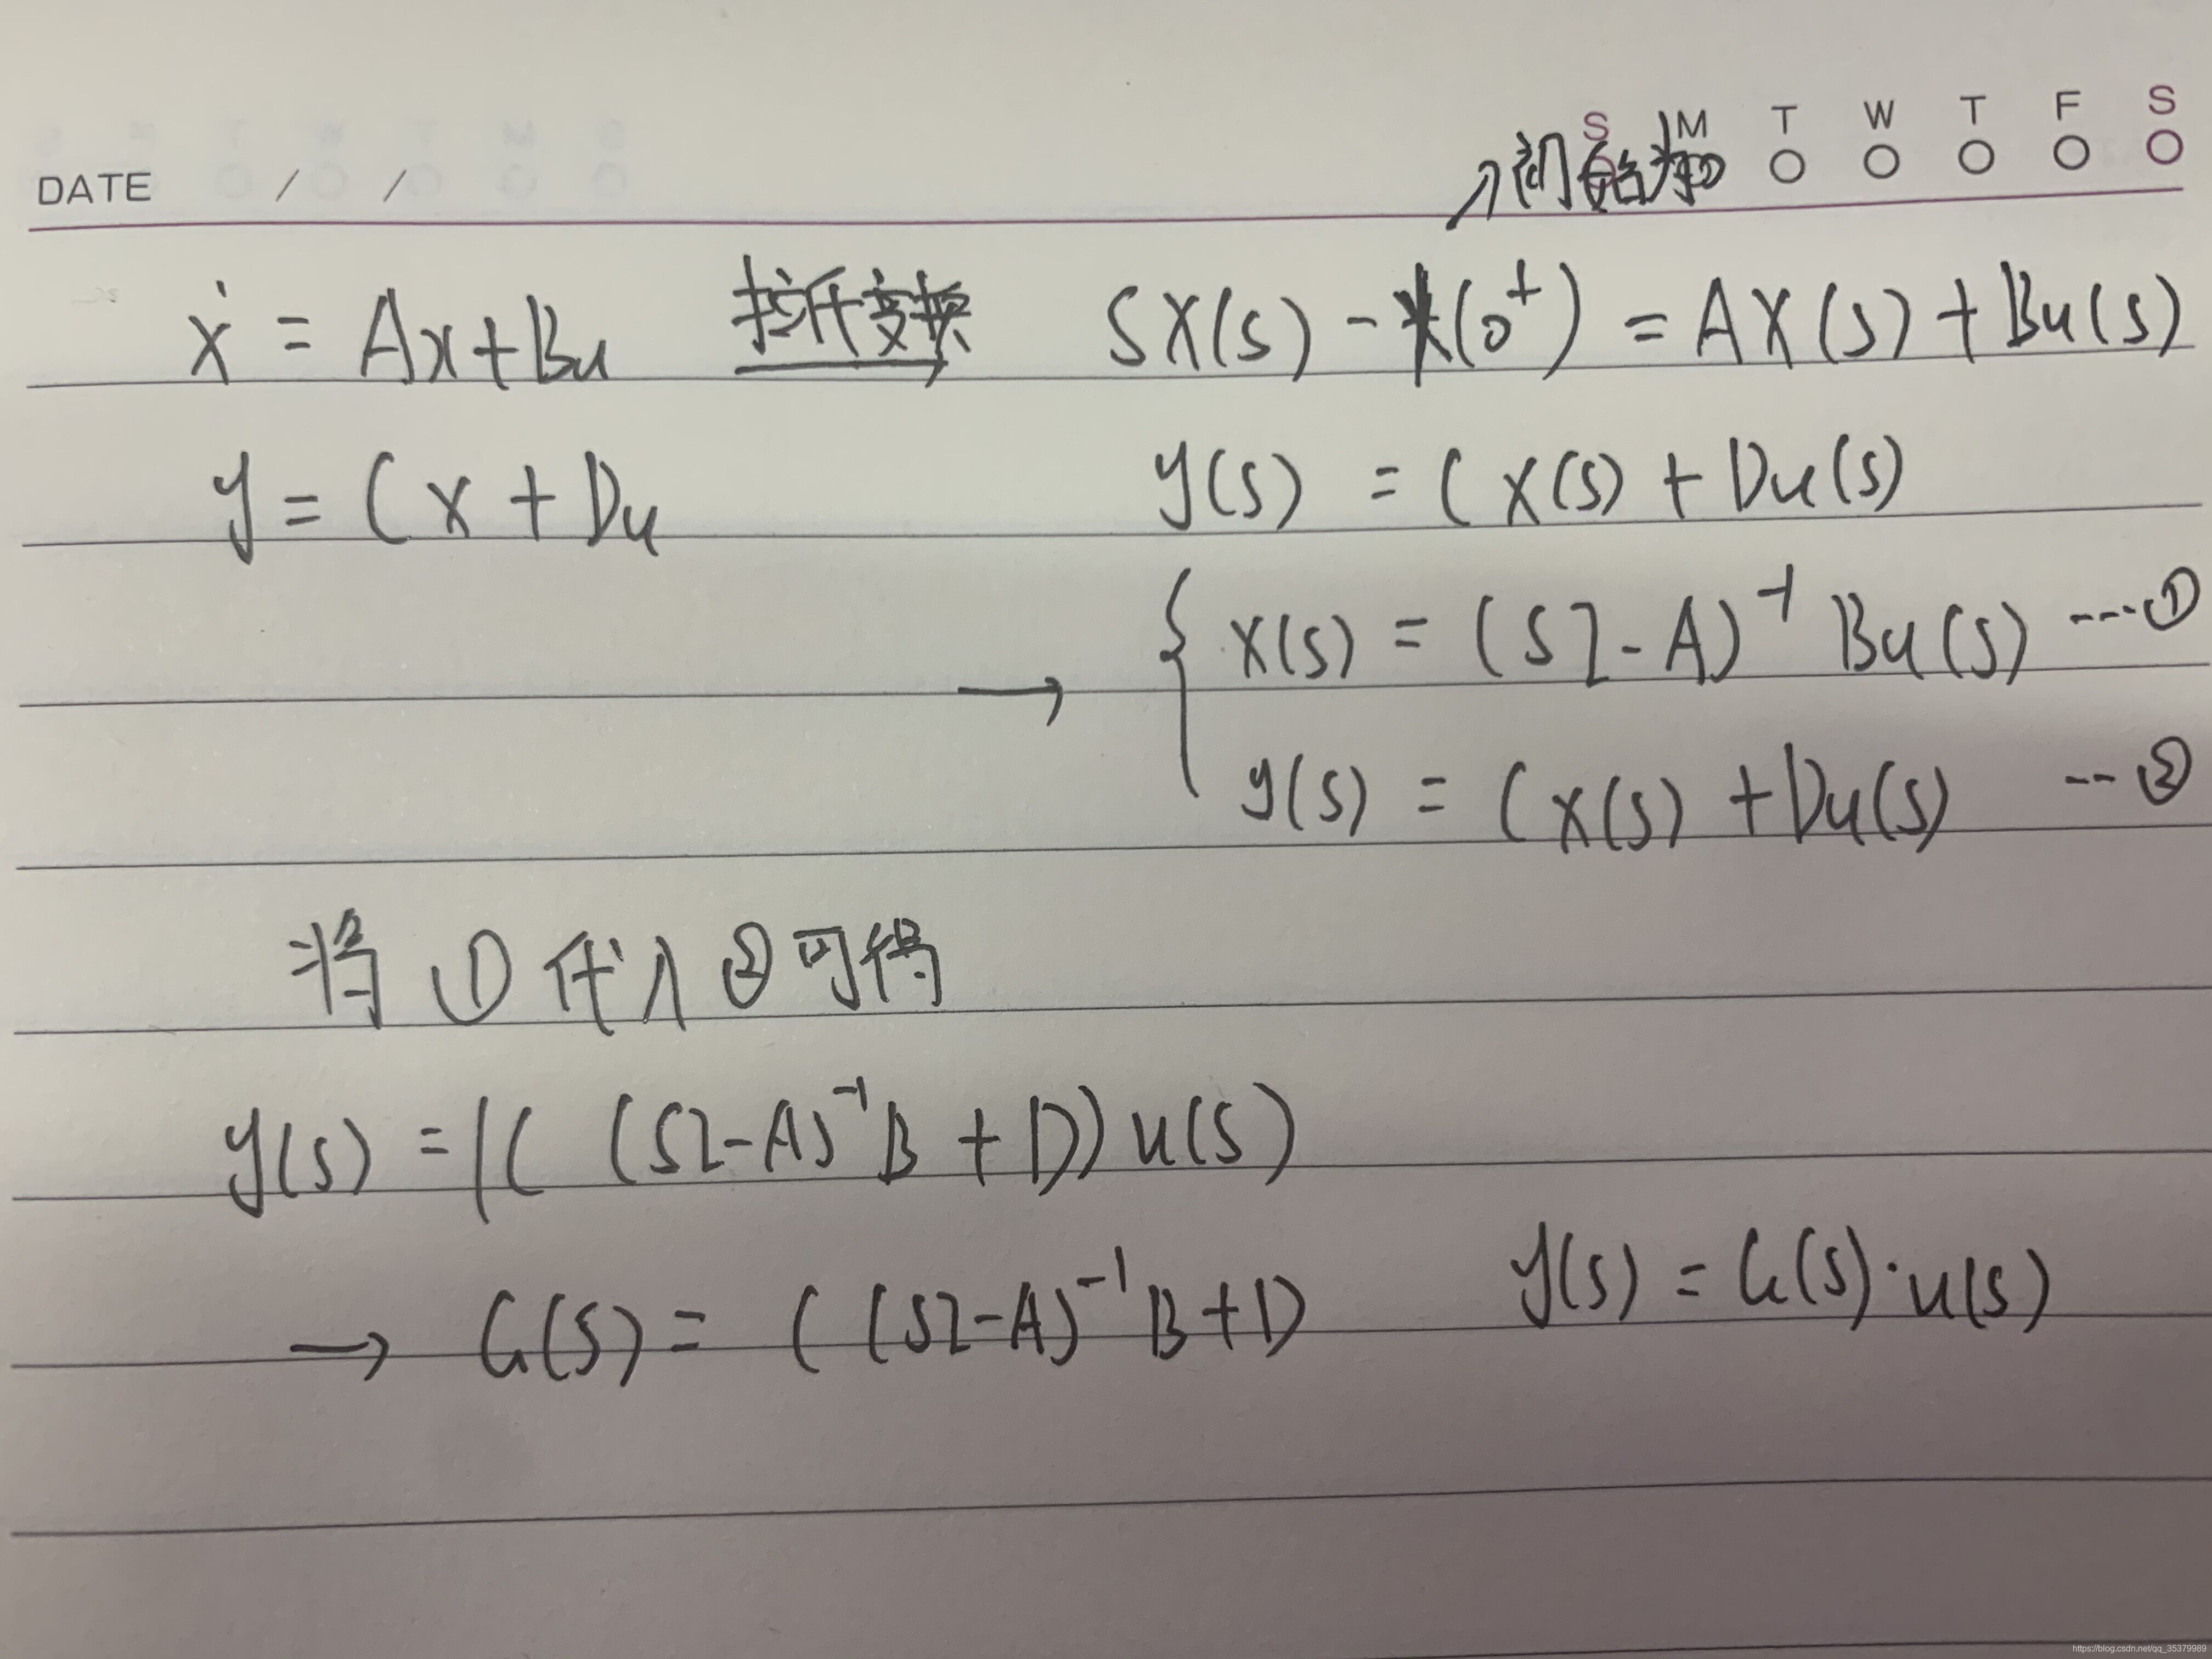 S M T W T F S
DATE / /
初始为0
ẋ = Ax+Bu 拉氏变换 SX(s) - X(0⁺) = AX(s) + Bu(s)
y = Cx + Du y(s) = CX(s) + Du(s)
→ { X(s) = (SI-A)⁻¹ Bu(s) ---①
y(s) = CX(s) + Du(s) --②
将①代入②可得
y(s) = (C (SI-A)⁻¹B + D) u(s)
→ G(s) = C (SI-A)⁻¹B+D y(s) = G(s)·u(s)
https://blog.csdn.net/qq_35379989